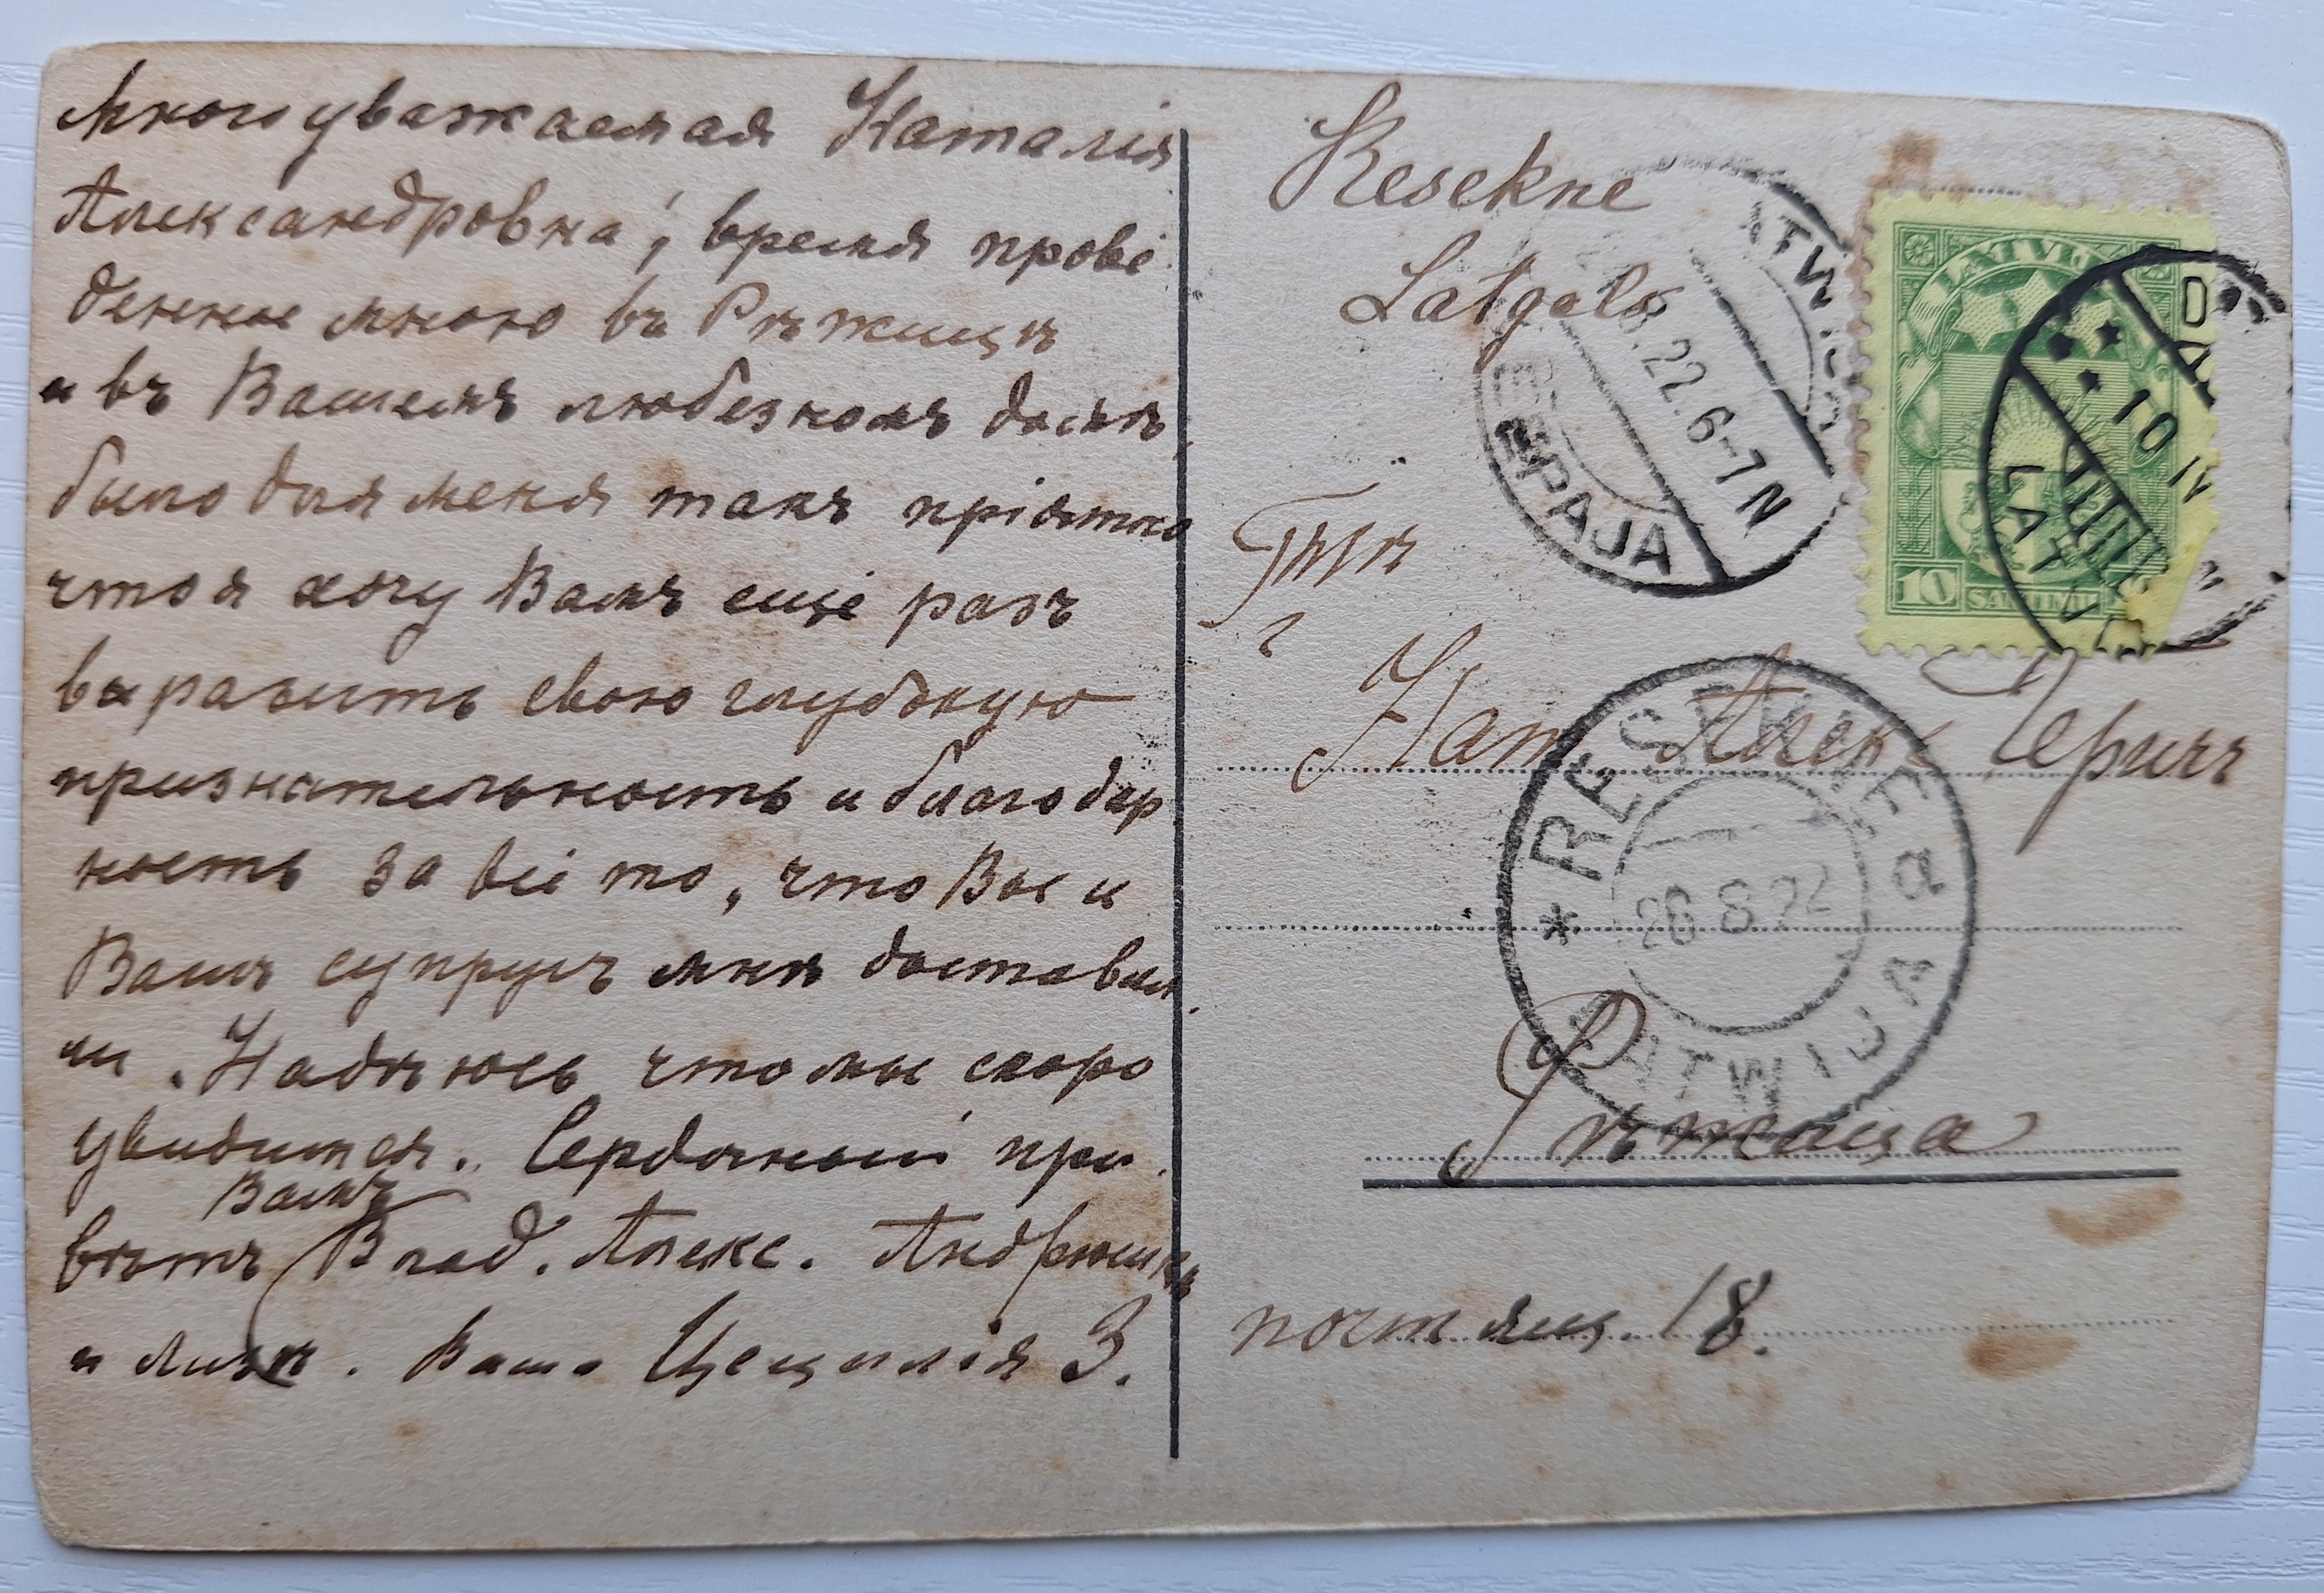 Многоуважаемая Наталія
Александровна! время прове
денное мною въ Рѣжицѣ
и въ Вашемъ любезномъ домѣ,
было для меня такъ пріятно
что я хочу Вамъ еще разъ
выразить свою глубокую
признательность и благодар
ность за все то, что Вы и
Вашъ супругъ мнѣ доставил
ли. Надѣюсь что мы скоро
увидимся. Сердечный при
Вамъ
вѣтъ Влад. Алекс. Андрюшѣ
и Лизѣ. Ваша Цецилія З.
Resekne
Latgale
Г-жѣ
Нат Алекс
Рѣжица
почт ящ. 18.
LATWIJA
8.22.6-7N
LEEPAJA
LATVIJA
10
SANTIMU
10 IV
LATV
RESEKNE a
26 8 22
* LATWIJA